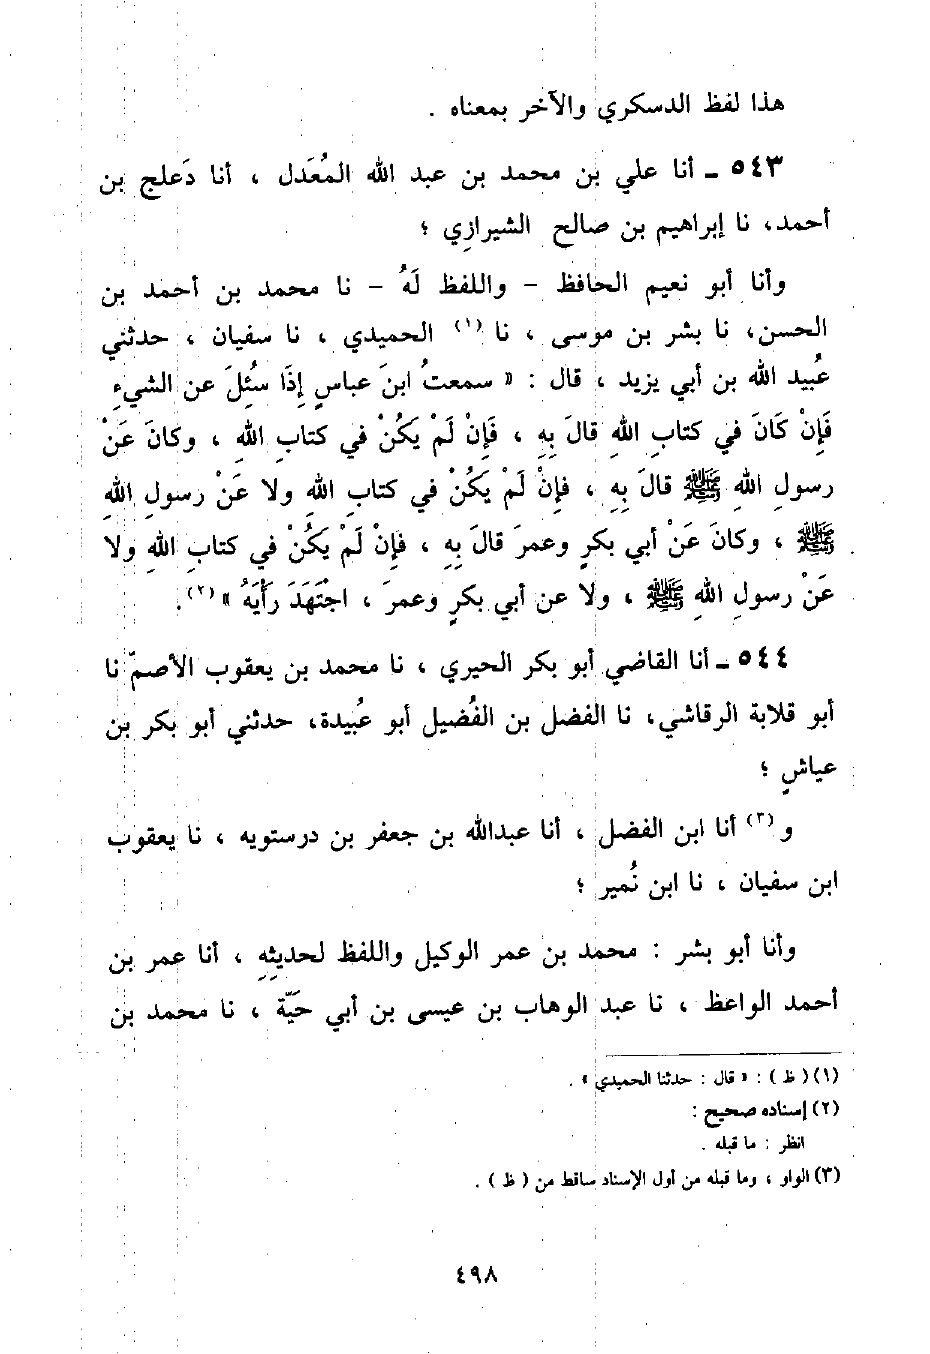 هذا لفظ الدسكري والآخر بمعناه .
٥٤٣ ـ أنا علي بن محمد بن عبد الله المُعَدل ، أنا دَعلج بن
أحمد، نا إبراهيم بن صالح الشيرازي ؛
وأنا أبو نعيم الحافظ - واللفظ لَهُ - نا محمد بن أحمد بن
الحسن، نا بشر بن موسى ، نا (١) الحميدي ، نا سفيان ، حدثني
عُبيد الله بن أبي يزيد ، قال : « سمعتُ ابنَ عباسٍ إِذَا سُئِلَ عن الشيءِ
فَإِنْ كَانَ في كتابِ اللهِ قالَ بِهِ ، فَإِنْ لَمْ يَكُنْ في كتابِ اللهِ ، وكانَ عَنْ
رسولِ اللهِ ﷺ قالَ بِهِ ، فإِنْ لَمْ يَكُنْ في كتابِ اللهِ ولا عَنْ رسولِ اللهِ
ﷺ ، وكانَ عَنْ أبي بكرٍ وعمرَ قالَ بِهِ ، فإِنْ لَمْ يَكُنْ في كتابِ اللهِ ولا
عَنْ رسولِ اللهِ ﷺ ، ولا عن أبي بكرٍ وعمرَ ، اجْتَهَدَ رَأْيَهُ » (٢).
٥٤٤ ـ أنا القاضي أبو بكر الحيري ، نا محمد بن يعقوب الأصمّ نا
أبو قلابة الرقاشي، نا الفضل بن الفُضيل أبو عُبيدة، حدثني أبو بكر بن
عياشٍ ؛
و (٣) أنا ابن الفضل ، أنا عبدالله بن جعفر بن درستويه ، نا يعقوب
ابن سفيان ، نا ابن نُمير ؛
وأنا أبو بشر : محمد بن عمر الوكيل واللفظ لحديثِهِ ، أنا عمر بن
أحمد الواعظ ، نا عبد الوهاب بن عيسى بن أبي حَيّة ، نا محمد بن
(١) ( ظ ) : « قال : حدثنا الحميدي » .
(٢) إسناده صحيح :
انظر : ما قبله .
(٣) الواو ، وما قبله من أول الإسناد ساقط من ( ظ ) .
٤٩٨